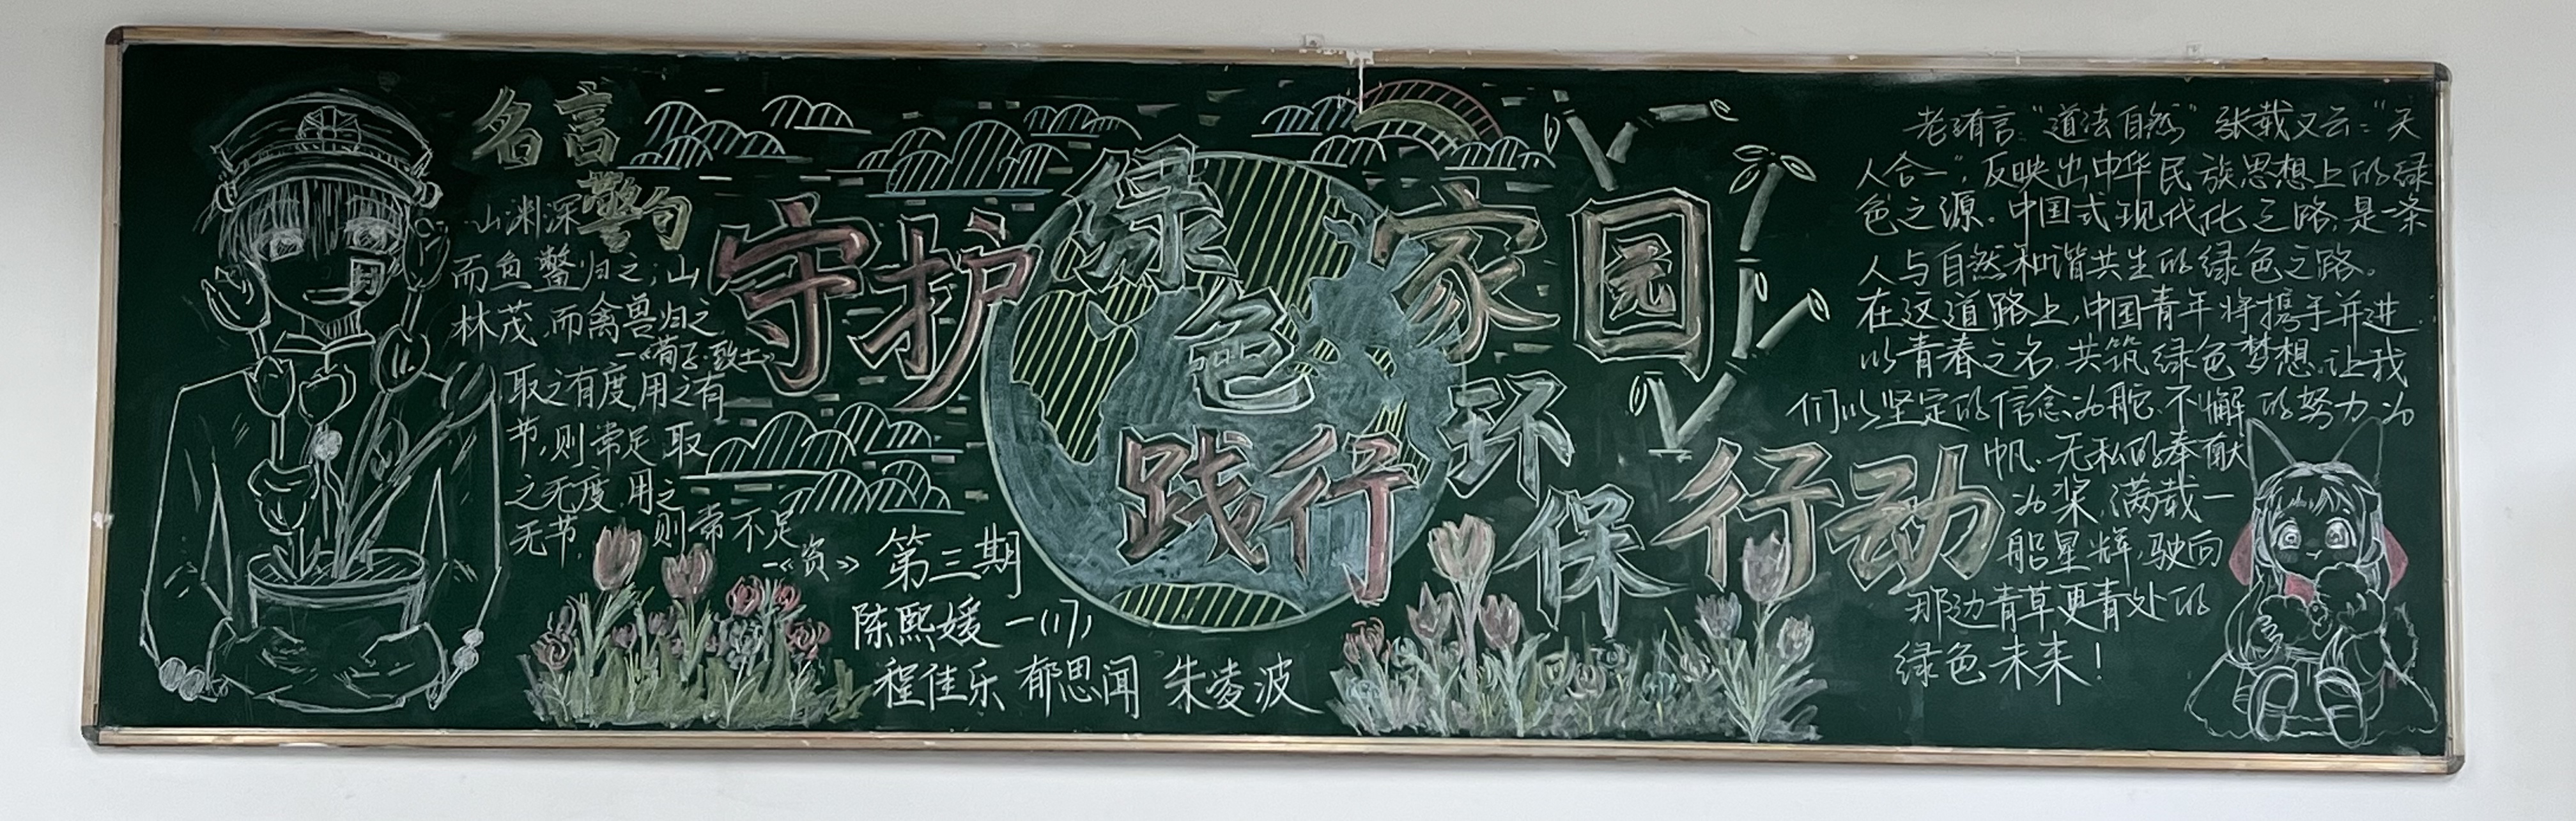 名言
警句
山渊深
而鱼鳖归之,山
林茂,而禽兽归之
—《荀子·致士》
取之有度,用之有
节,则常足 取
之无度,用之
无节,则常不足
—《资》
守护绿色家园
践行环保行动
封
第三期
陈熙媛 一(17)
程佳乐 郁思闻 朱凌波
有言:“道法自然”张载又云:“天
人合一”,反映出中华民族思想上的绿
色之源。中国式现代化之路,是一条
人与自然和谐共生的绿色之路。
在这道路上,中国青年将携手并进,
以青春之名,共筑绿色梦想,让我
们以坚定的信念为舵,不懈的努力为
帆,无私的奉献
为桨,满载一
船星辉,驶向
那边青草更青处的
绿色未来!